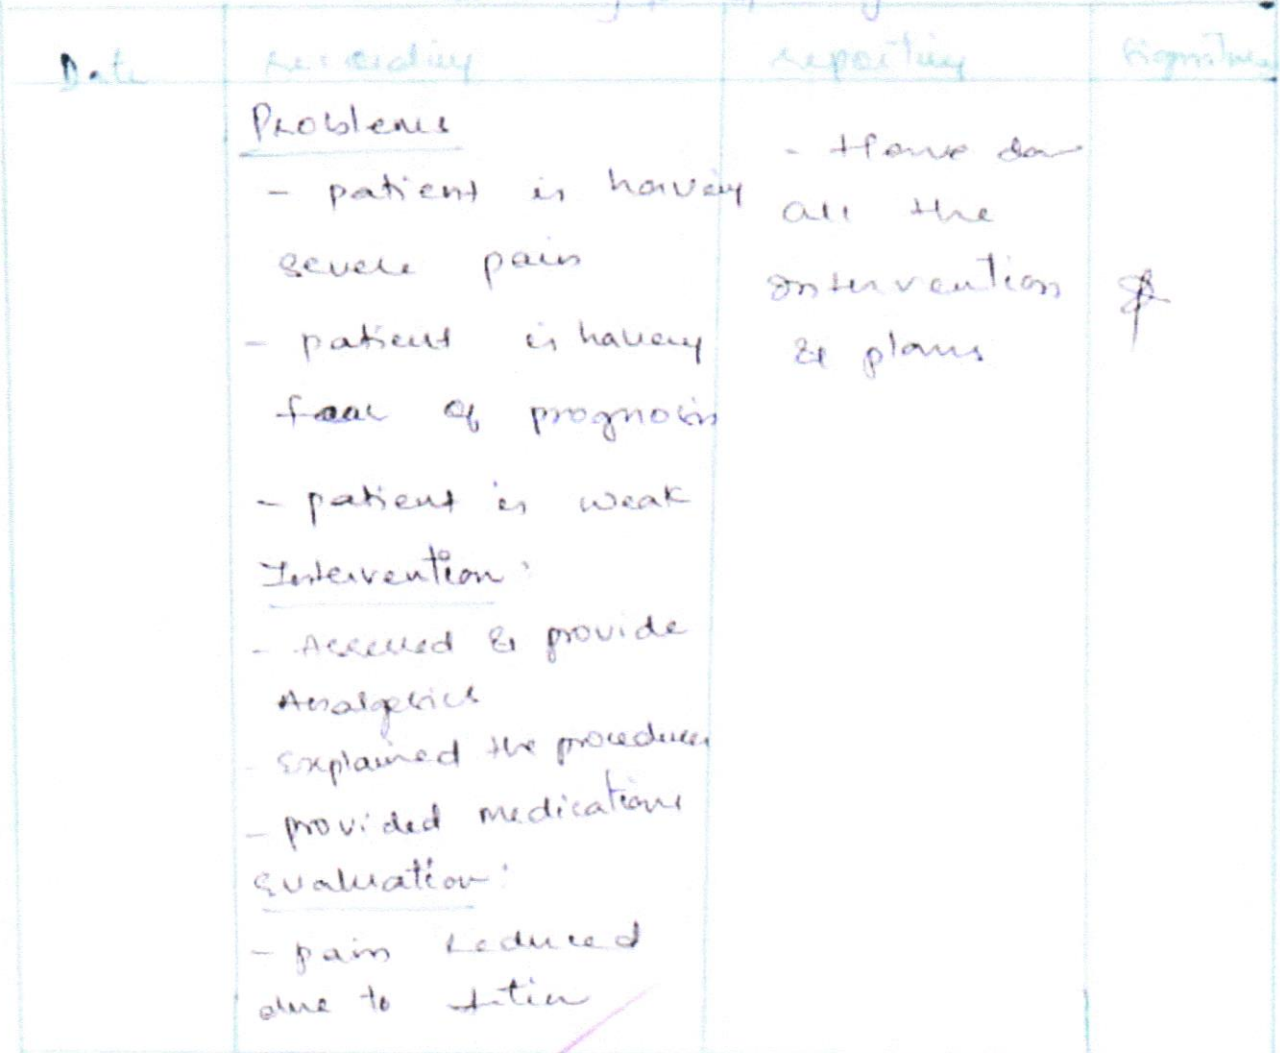 Date recording reporting Signature
Problems
- patient is having
severe pain
- patient is having
fear of prognosis
- patient is weak
Intervention:
- Assessed & provide
Analgesics
- Explained the procedures
- provided medications
Evaluation:
- pain reduced
due to
- Have
all the
Intervention
& plans